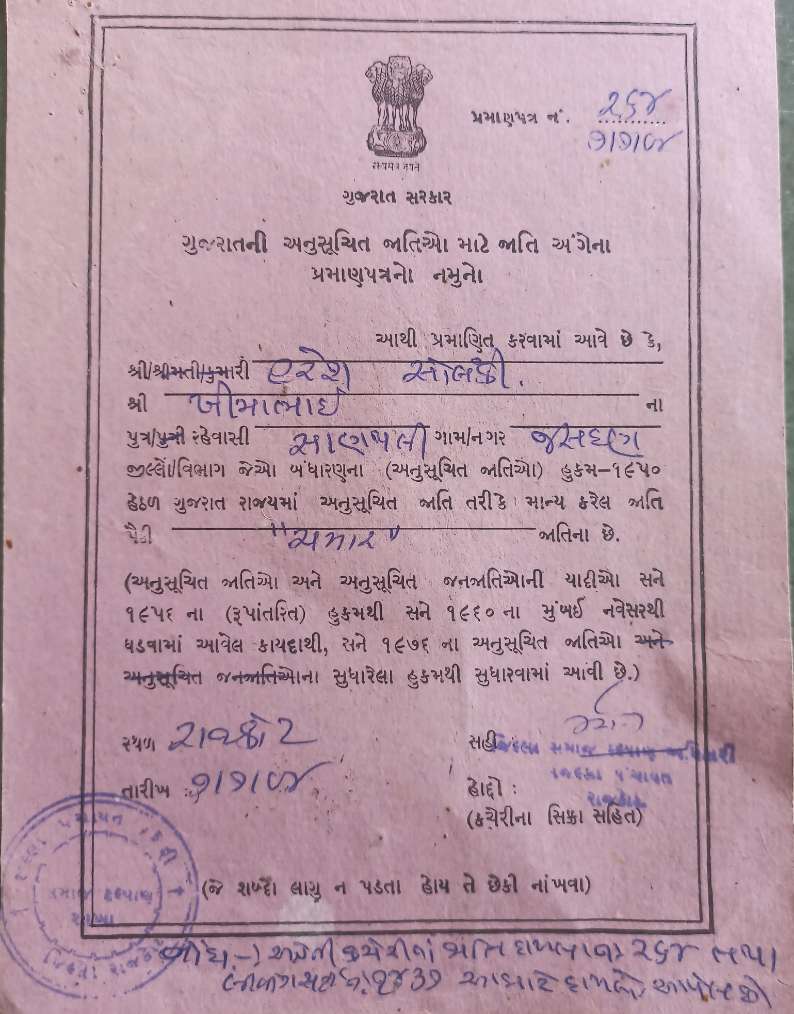 પ્રમાણપત્ર નં. ૨૬૪
૭/૭/૦૪
सत्यमेव जयते
ગુજરાત સરકાર
ગુજરાતની અનુસૂચિત જાતિઓ માટે જાતિ અંગેના
પ્રમાણપત્રનો નમુનો
આથી પ્રમાણિત કરવામાં આવે છે કે,
શ્રી/શ્રીમતી/કુમારી હરેશ સોલંકી.
શ્રી ખીમાભાઈ ના
પુત્ર/પુત્રી રહેવાસી સાણથલી ગામ/નગર જસદણ
જીલ્લો/વિભાગ જેઓ બંધારણના (અનુસૂચિત જાતિઓ) હુકમ–૧૯૫૦
હેઠળ ગુજરાત રાજ્યમાં અનુસૂચિત જાતિ તરીકે માન્ય કરેલ જાતિ
પૈકી "ચમાર" જાતિના છે.
(અનુસૂચિત જાતિઓ અને અનુસૂચિત જનજાતિઓની યાદીઓ સને
૧૯૫૬ ના (રૂપાંતરિત) હુકમથી સને ૧૯૬૦ ના મુંબઈ નવેસરથી
ઘડવામાં આવેલ કાયદાથી, સને ૧૯૭૬ ના અનુસૂચિત જાતિઓ અને
અનુસૂચિત જનજાતિઓના સુધારેલા હુકમથી સુધારવામાં આવી છે.)
સ્થળ રાજકોટ
સહી
જિલ્લા સમાજ કલ્યાણ અધિકારી
જિલ્લા પંચાયત
રાજકોટ
તારીખ : ૭/૭/૦૪
હોદ્દો :
(કચેરીના સિક્કા સહિત)
સમાજ કલ્યાણ
શાખા
(જે શબ્દો લાગુ ન પડતા હોય તે છેકી નાંખવા)
નોંધ:- અત્રેની કચેરીનાં જાતિ દાખલા નં ૨૬૪ તથા
આધારે દાખલો